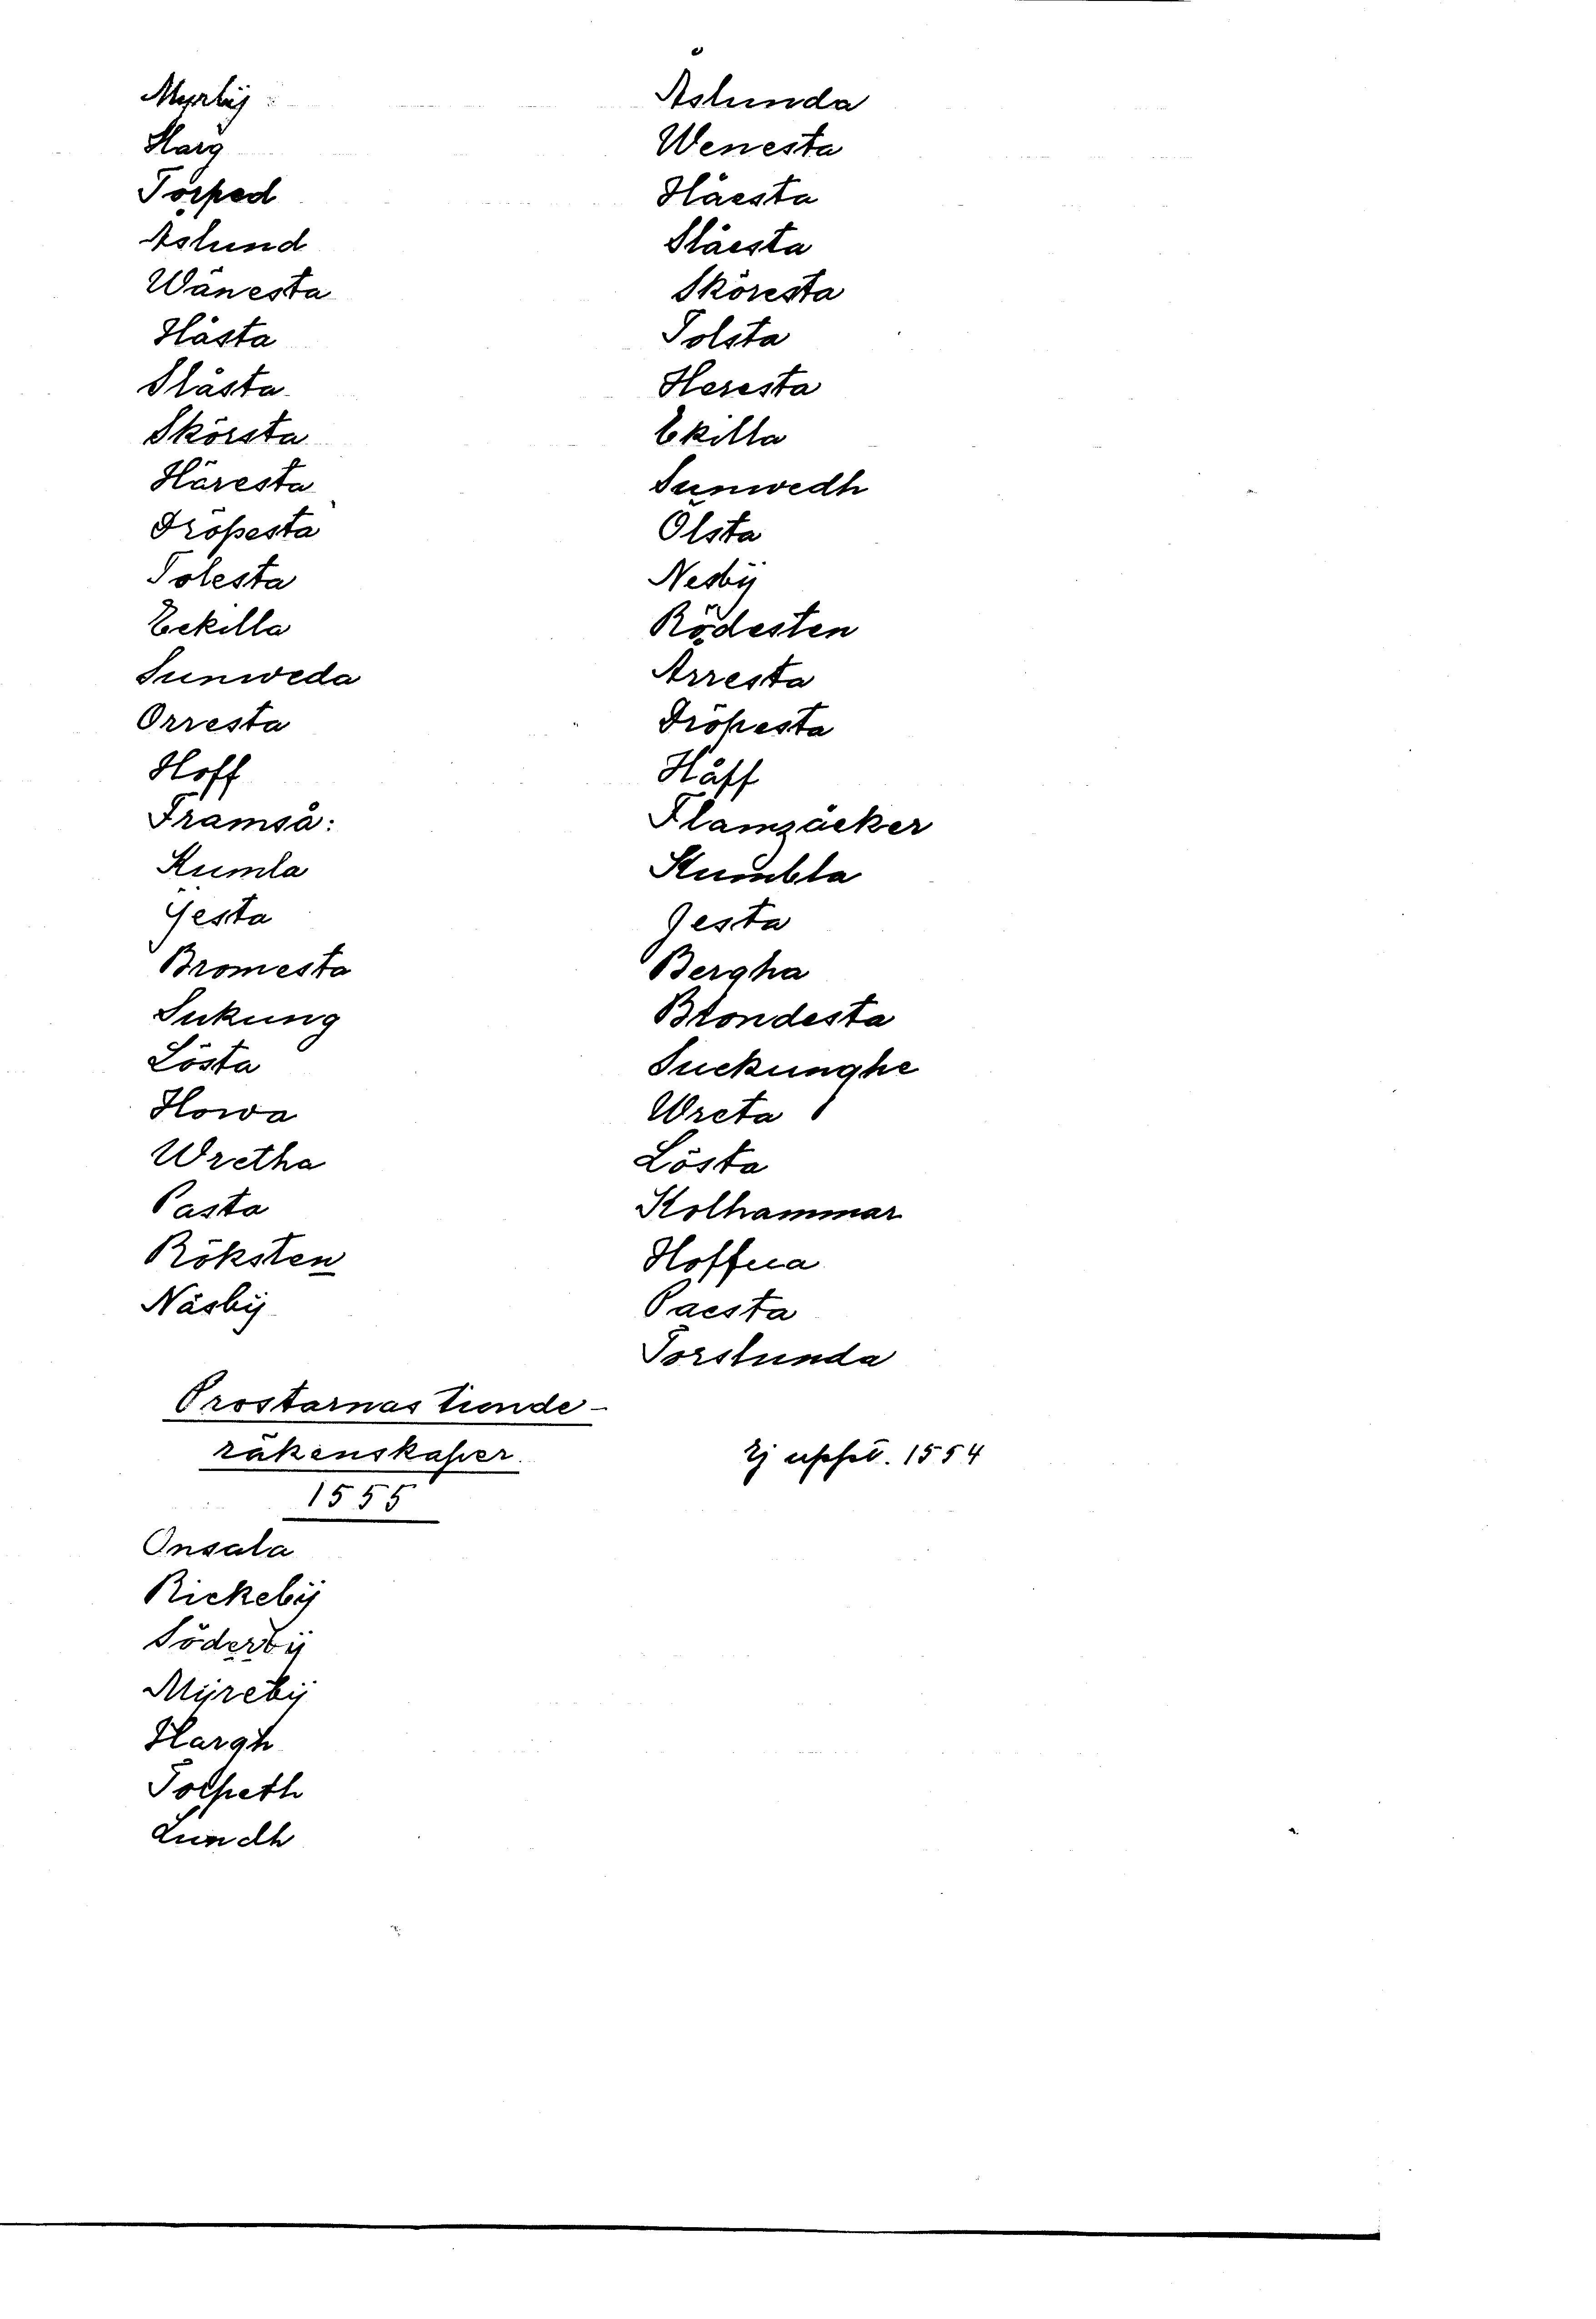 Myrbÿ
Harg
Torped
Åslund
Wänesta
Håsta
Slåsta
Skörsta
Häresta
Dröpesta
Tolesta
Eekilla
Sunweda
Orresta
Hoff
Framså:
Kumla
Ÿesta
Bromesta
Sukung
Lösta
Howa
Wretha
Pasta
Röksten
Näsbÿ
Prostarnas tiende-
räkenskaper.
1555
Onsala
Rickebÿ
Söderbÿ
Mÿrebÿ
Hargh
Torpeth
Lundh
Åslunda
Wenesta
Håesta
Slåesta
Sköresta
Tolsta
Heresta
Ekilla
Sunwedh
Ölsta
Nesbÿ
Rödesten
Årresta
Dröpesta
Håff
Flamzåcker
Kumbla
Jesta
Bergha
Brondesta
Suckunghe
Wreta
Lösta
Kolhammar
Hoffua
Paesta
Torslunda
Ej uppt. 1554